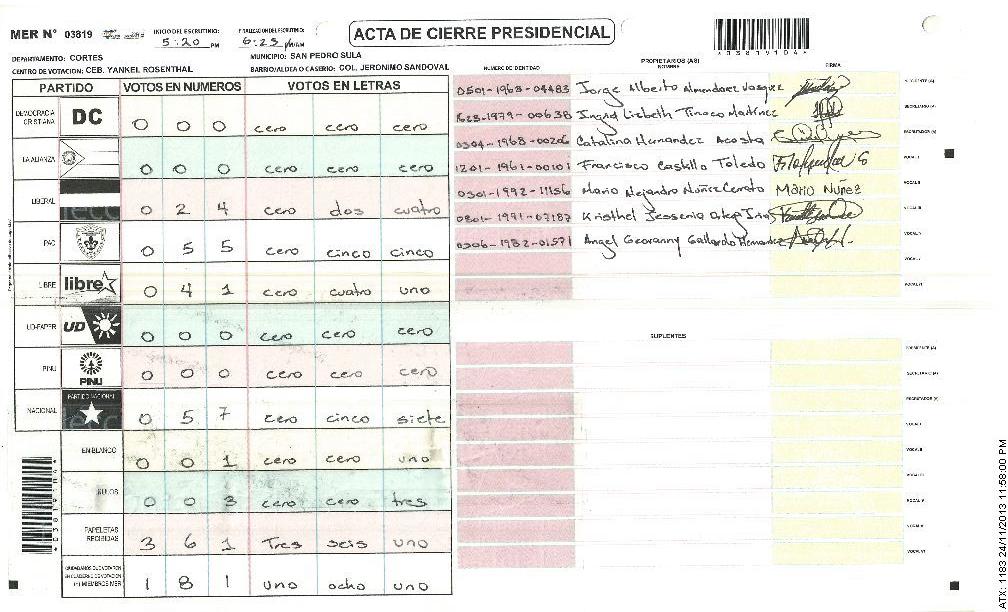 MER N° 03819 INICIO DEL ESCRUTINIO: 5:20 PM FINALIZACION DEL ESCRUTINIO: 6:25 PM/AM
ACTA DE CIERRE PRESIDENCIAL
*03819104*
DEPARTAMENTO: CORTES MUNICIPIO: SAN PEDRO SULA
CENTRO DE VOTACION: CEB. YANKEL ROSENTHAL BARRIO/ALDEA O CASERIO: COL. JERONIMO SANDOVAL
PARTIDO VOTOS EN NUMEROS VOTOS EN LETRAS
DEMOCRACIA CRISTIANA DC 0 0 0 cero cero cero
LA ALIANZA 0 0 0 cero cero cero
LIBERAL 0 2 4 cero dos cuatro
PAC 0 5 5 cero cinco cinco
LIBRE libre 0 4 1 cero cuatro uno
UD-FAPER UD 0 0 0 cero cero cero
PINU PINU 0 0 0 cero cero cero
NACIONAL PARTIDO NACIONAL 0 5 7 cero cinco siete
EN BLANCO 0 0 1 cero cero uno
NULOS 0 0 3 cero cero tres
PAPELETAS RECIBIDAS 3 6 1 Tres seis uno
CIUDADANOS QUE VOTARON EN CUADERNO DE VOTACION (+) MIEMBROS MER 1 8 1 uno ocho uno
PROPIETARIOS (AS)
NUMERO DE IDENTIDAD NOMBRE FIRMA
0501-1963-04483 Jorge Alberto Almendarez Vasquez PRESIDENTE (A)
1623-1979-00638 Ingrid Lizbeth Tinoco Martinez SECRETARIO (A)
0304-1968-00206 Catalina Hernandez Acosta ESCRUTADOR (A)
1201-1961-00101 Francisco Castillo Toledo VOCAL I
0301-1992-11156 Mario Alejandro Nuñez Cerrato Mario Nuñez VOCAL II
0801-1991-07187 Kristhel Jessenia VOCAL III
0306-1982-01571 Angel Geovanny Gallardo Hernandez VOCAL IV
VOCAL V
VOCAL VI
SUPLENTES
PRESIDENTE (A)
SECRETARIO (A)
ESCRUTADOR (A)
VOCAL I
VOCAL II
VOCAL III
VOCAL IV
VOCAL V
VOCAL VI
ATX: 1183 24/11/2013 11:58:00 PM